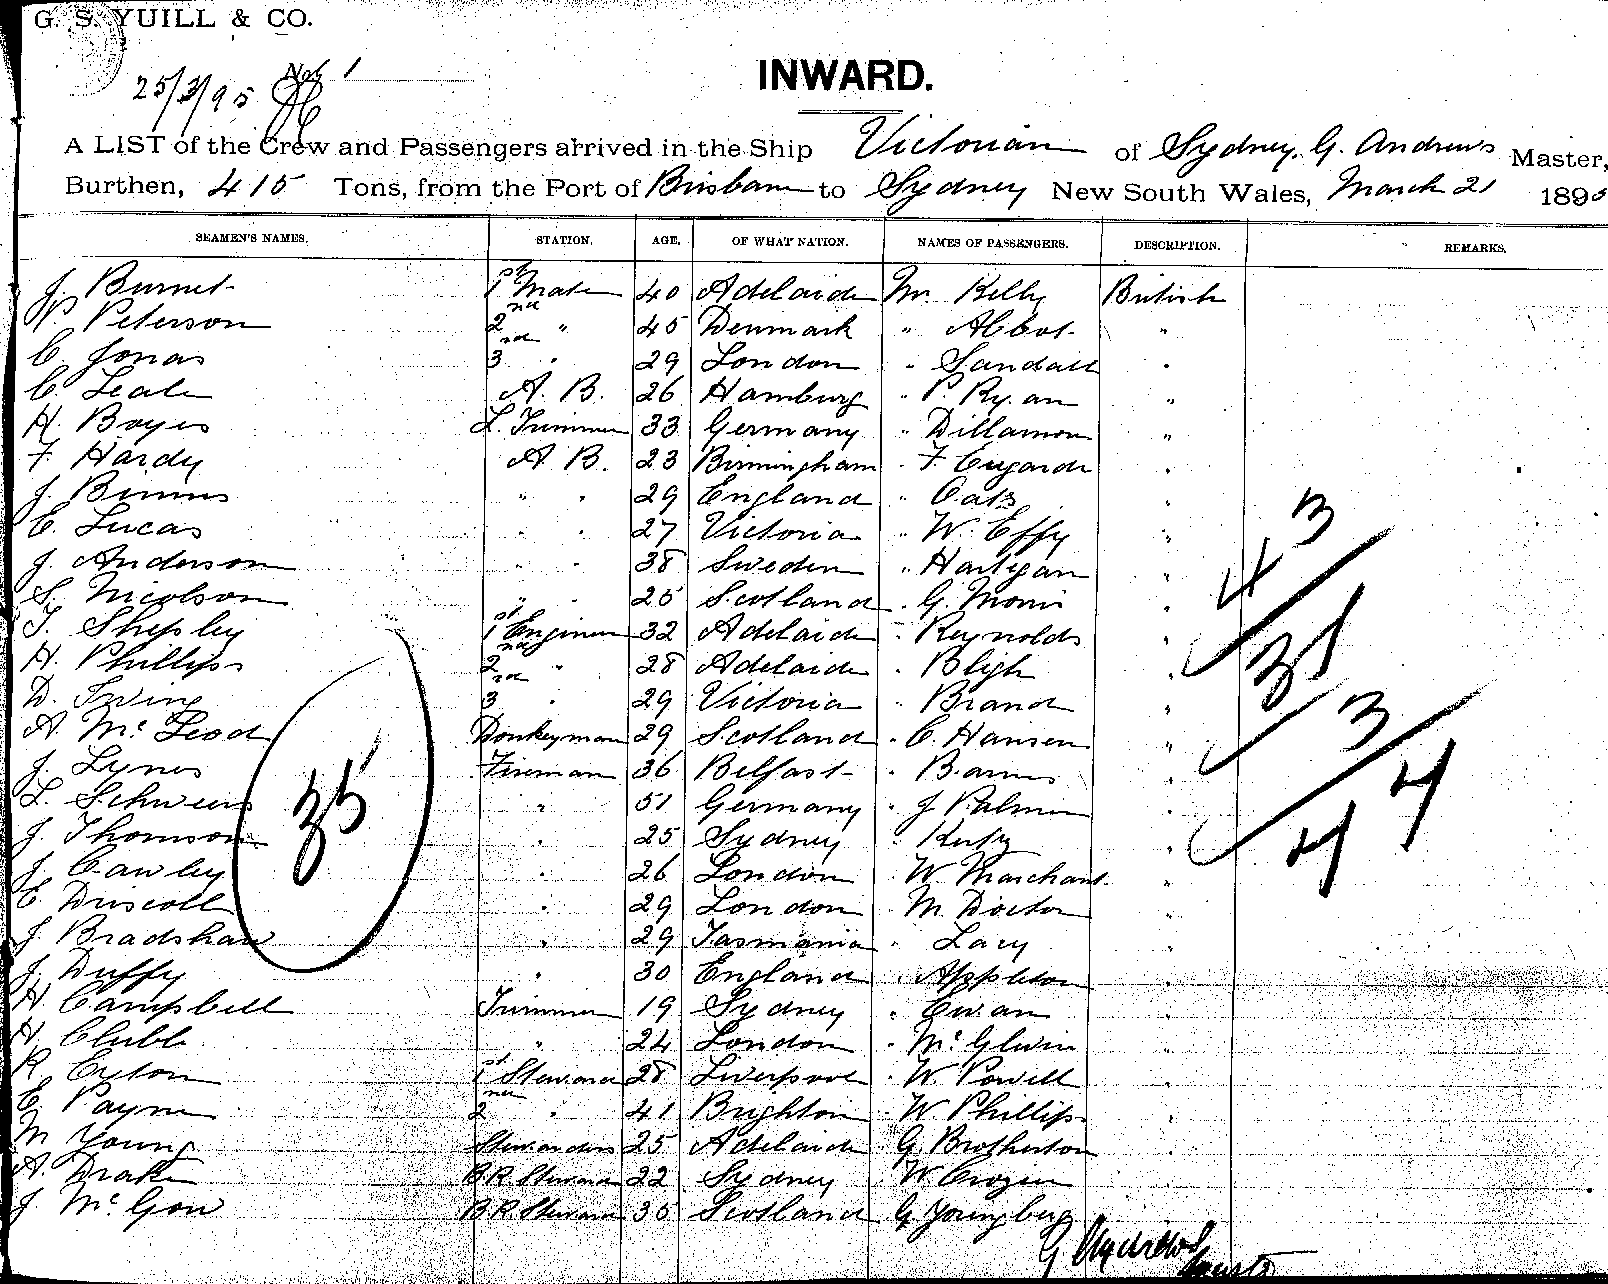 G. S. YUILL & CO.
25/3/95
INWARD.
A LIST of the Crew and Passengers arrived in the Ship Victorian of Sydney, G. Andrews Master,
Burthen, 415 Tons, from the Port of Brisbane to Sydney New South Wales, March 21 1895
SEAMEN'S NAMES. STATION. AGE. OF WHAT NATION. NAMES OF PASSENGERS. DESCRIPTION. REMARKS.
J. Burnet 1st Mate 40 Adelaide Mr. Kelly British
P. Peterson 2nd " 45 Denmark " Abbot "
C. Jonas 3rd " 29 London " Sandall "
C. Leale A. B. 26 Hamburg " P. Ryan "
H. Boyes L. Trimmer 33 Germany " Dillamore "
F. Hardy A. B. 23 Birmingham " F. "
J. Binns " " 29 England " "
C. Lucas " " 27 Victoria " W. Effy "
J. Anderson " " 38 Sweden " Hartigan "
S. Nicolson " " 25 Scotland " G. Morris "
T. Shepley 1st Engineer 32 Adelaide " Reynolds "
H. Phillips 2nd " 28 Adelaide " Bligh "
D. Irving 3rd " 29 Victoria " Brand "
A. McLeod Donkeyman 29 Scotland " C. Hansen "
J. Lynes Fireman 36 Belfast " Barnes "
L. " 51 Germany " J Palmer "
J. Thomson " 25 Sydney " "
J. Cawley " 26 London " W. Marchant "
E. Driscoll " 29 London " M. Doctor "
J. Bradshaw " 29 Tasmania " Lacy "
J. Duffy " 30 England " Appleton "
H. Campbell Trimmer 19 Sydney " Ewan "
H. Clubb " 24 London " "
R. Cryton 1st Steward 28 Liverpool " W. Powell "
C. Payne 2nd " 41 Brighton " W Phillips "
M Young Stewardess 25 Adelaide G. Brotherton
A. Drake B.R. Steward 22 Sydney W. Crozier
J. McGow B.R. Steward 35 Scotland G Youngberg
35
43
31
3
4
4
G Andrews